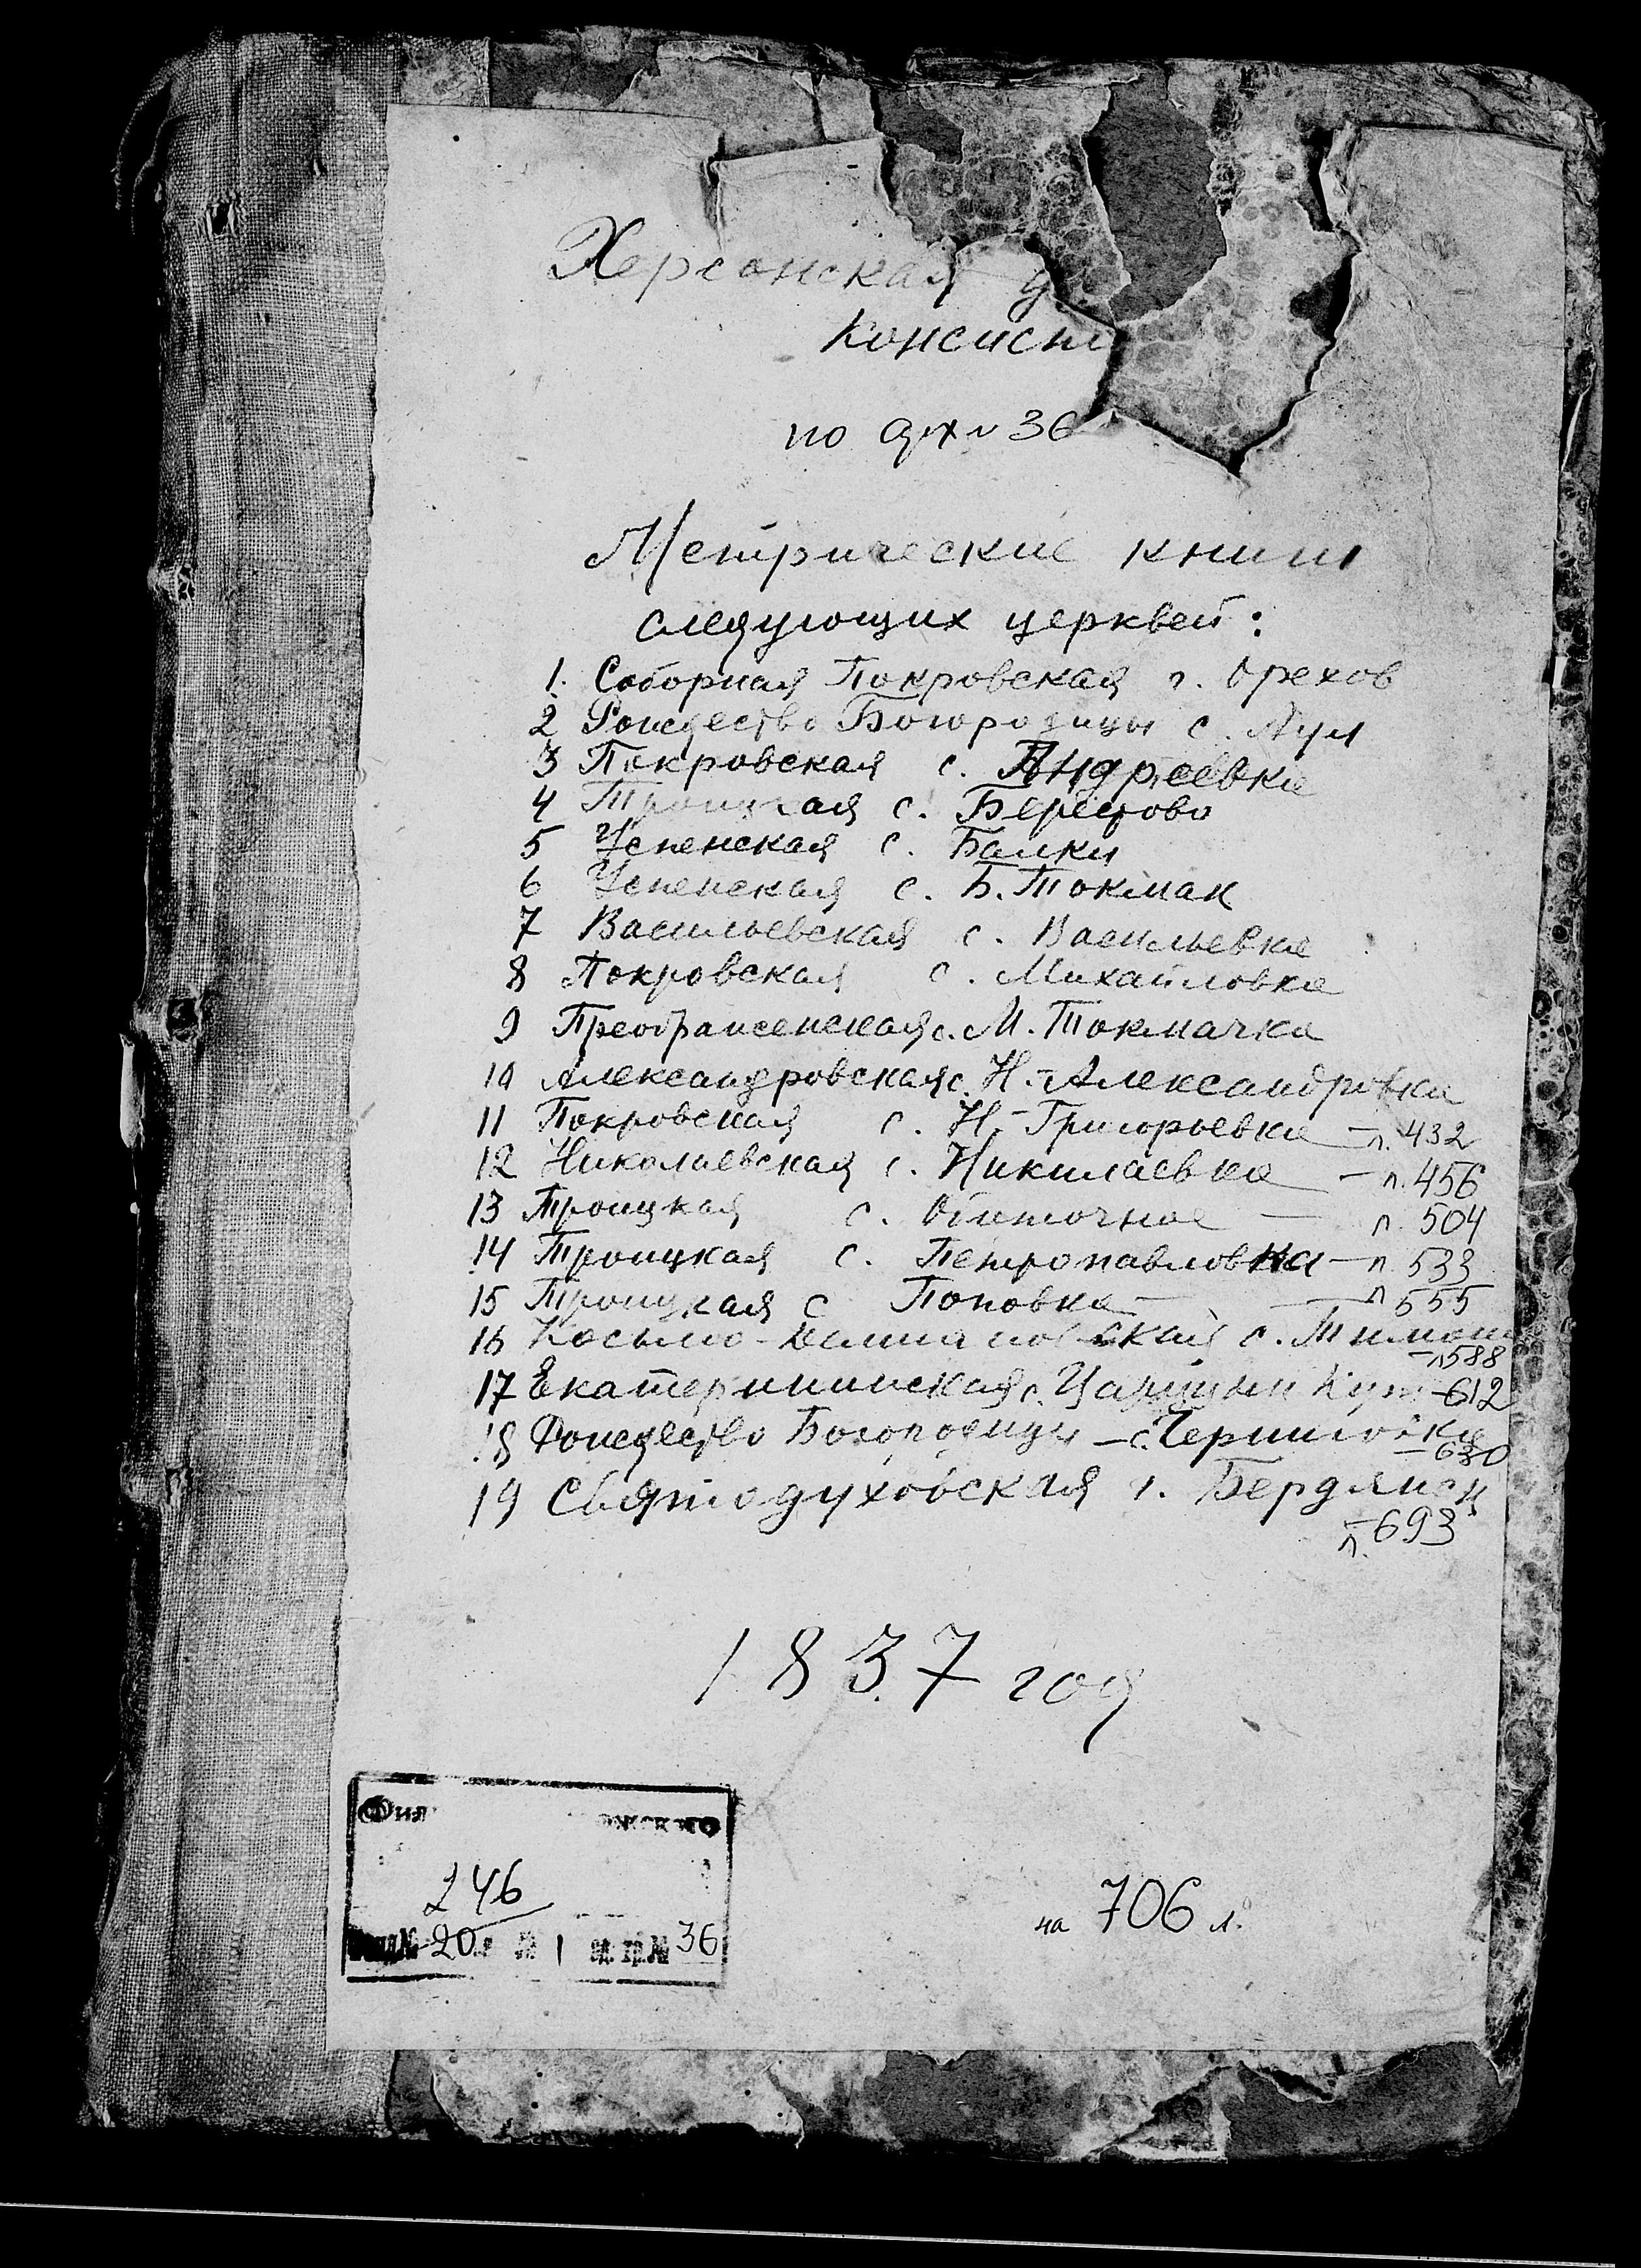 Херсонская д
Консист
по арх № 36
Метрические книги
следующих церквей:
1. Соборная Покровская г. Орехов
2 Рождество Богородицы с. Аул
3 Покровская с. Андреевка
4 Троицкая с. Берестово
5 Успенская с. Балки
6 Успенская с. Б. Токмак
7 Васильевская с. Васильевка
8 Покровская с. Михайловка
9 Преображенская с. М. Токмачка
10 Александровская с. Н.-Александровка
11 Покровская с. Н-Григорьевка – л. 432
12 Николаевская с. Николаевка – л. 456
13 Троицкая с. Обиточное – л. 504
14 Троицкая с. Петропавловка – л. 533
15 Троицкая с Поповка – л 555
16 Косьмо-Дамиановская с. Тимош
– л 588
17 Екатерининская с. Царицын Кут – 612
18 Рождество Богородицы – с. Черниговка
– 630
19 Святодуховская г. Бердянск
л. – 693
1837 год
Фил
246
Фонд № 20 1 ед. хр. № 36
на 706 л.